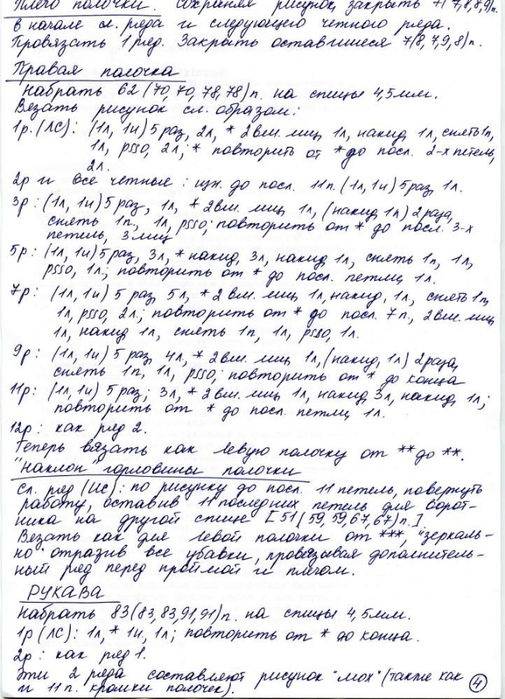 Плечо полочки. Сохраняя рисунок, закрыть 7(7,8,8,9)п.
в начале сл. ряда и следующего четного ряда.
Провязать 1 ряд. Закрыть оставшиеся 7(8,7,9,8)п.
Правая полочка
Набрать 62 (70, 70, 78, 78) п. на спицы 4,5 мм.
Вязать рисунок сл. образом:
1р. (ЛС): (1л, 1и) 5 раз, 2л, * 2 вм. лиц, 1л, накид, 1л, снять 1п,
1л, psso, 2л; * повторить от * до посл. 2-х петель,
2л.
2р и все четные: изн. до посл. 11п. (1л, 1и) 5 раз, 1л.
3р: (1л, 1и) 5 раз, 1л, * 2 вм. лиц, 1л, (накид, 1л) 2 раза,
снять 1п, 1л, psso; повторить от * до посл. 3-х
петель, 3 лиц
5р: (1л, 1и) 5 раз, 3л, * накид, 3л, накид, 1л, снять 1п, 1л,
psso, 1л; повторить от * до посл. петли, 1л.
7р: (1л, 1и) 5 раз, 5л, * 2 вм. лиц, 1л, накид, 1л, снять 1п,
1л, psso, 2л; повторить от * до посл. 7п, 2 вм. лиц,
1л, накид, 1л, снять 1п, 1л, psso, 1л.
9р: (1л, 1и) 5 раз, 4л, * 2 вм. лиц, 1л, (накид, 1л) 2 раза,
снять 1п, 1л, psso; повторить от * до конца
11р: (1л, 1и) 5 раз; 3л, * 2 вм. лиц, 1л, накид, 3л, накид, 1л;
повторить от * до посл. петли, 1л.
12р: как ряд 2.
Теперь вязать как левую полочку от ** до **.
"Наклон" горловины полочки
Сл. ряд (ИС): по рисунку до посл. 11 петель, повернуть
работу, оставив 11 последних петель для ворот-
ника на другой спице [51 (59, 59, 67, 67) п.]
Вязать как для левой полочки от ***, "зеркаль-
но" отразив все убавки, провязывая дополнитель-
ный ряд перед проймой и плечом.
РУКАВА
Набрать 83 (83, 83, 91, 91) п. на спицы 4,5 мм.
1р (ЛС): 1л, * 1и, 1л; повторить от * до конца.
2р: как ряд 1.
Эти 2 ряда составляют рисунок "мох" (также как
и 11 п. кромки полочек).
4